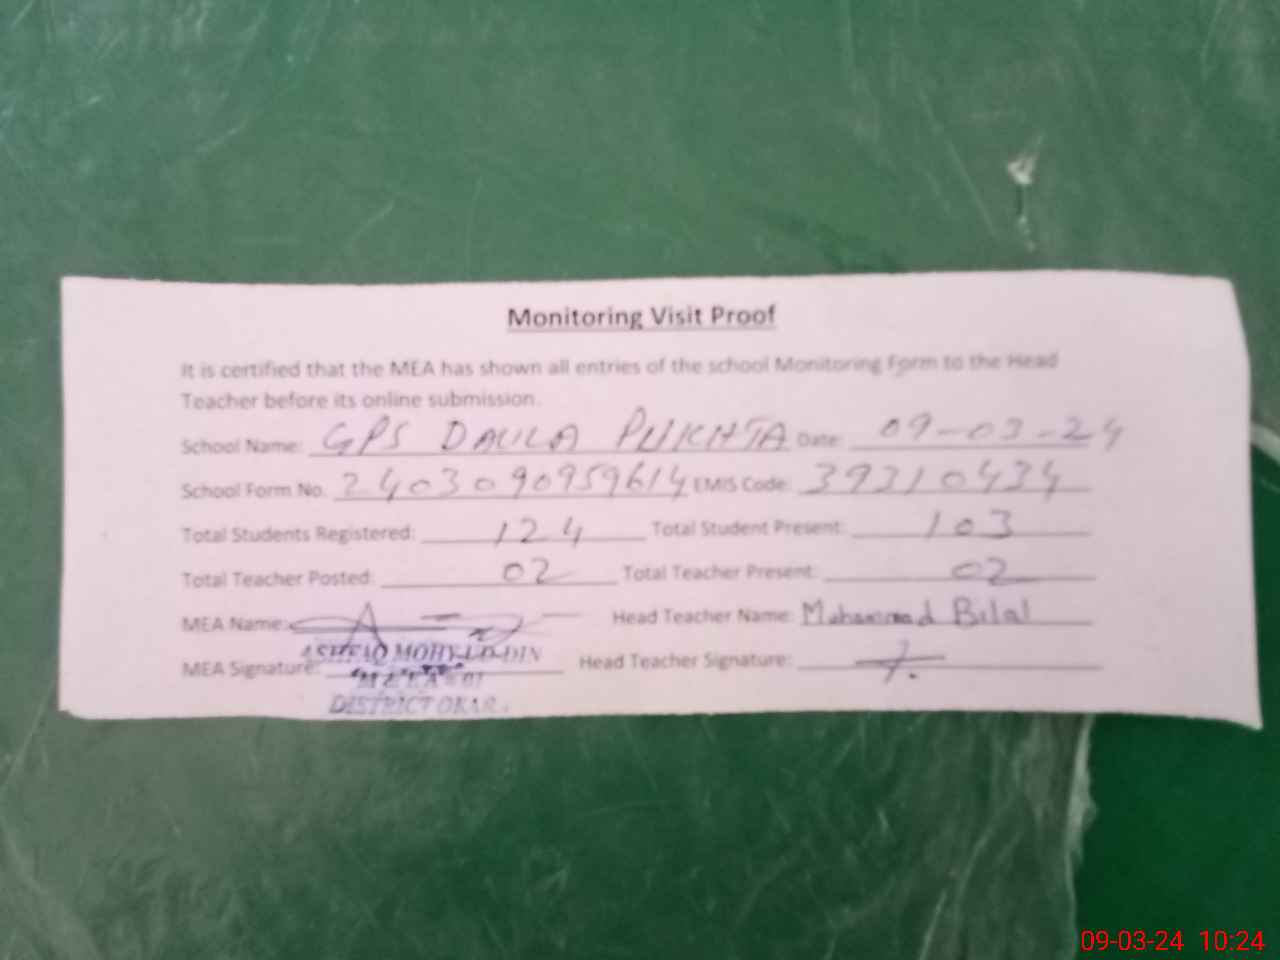 Monitoring Visit Proof
It is certified that the MEA has shown all entries of the school Monitoring Form to the Head
Teacher before its online submission.
School Name: GPS DAULA PUKHTA Date: 09-03-24
School Form No. 2403090959614 EMIS Code: 39310434
Total Students Registered: 124 Total Student Present: 103
Total Teacher Posted: 02 Total Teacher Present: 02
MEA Name: Head Teacher Name: Muhammad Bilal
MEA Signature: Head Teacher Signature:
ASHFAQ MOHY-UD-DIN
DISTRICT
09-03-24 10:24